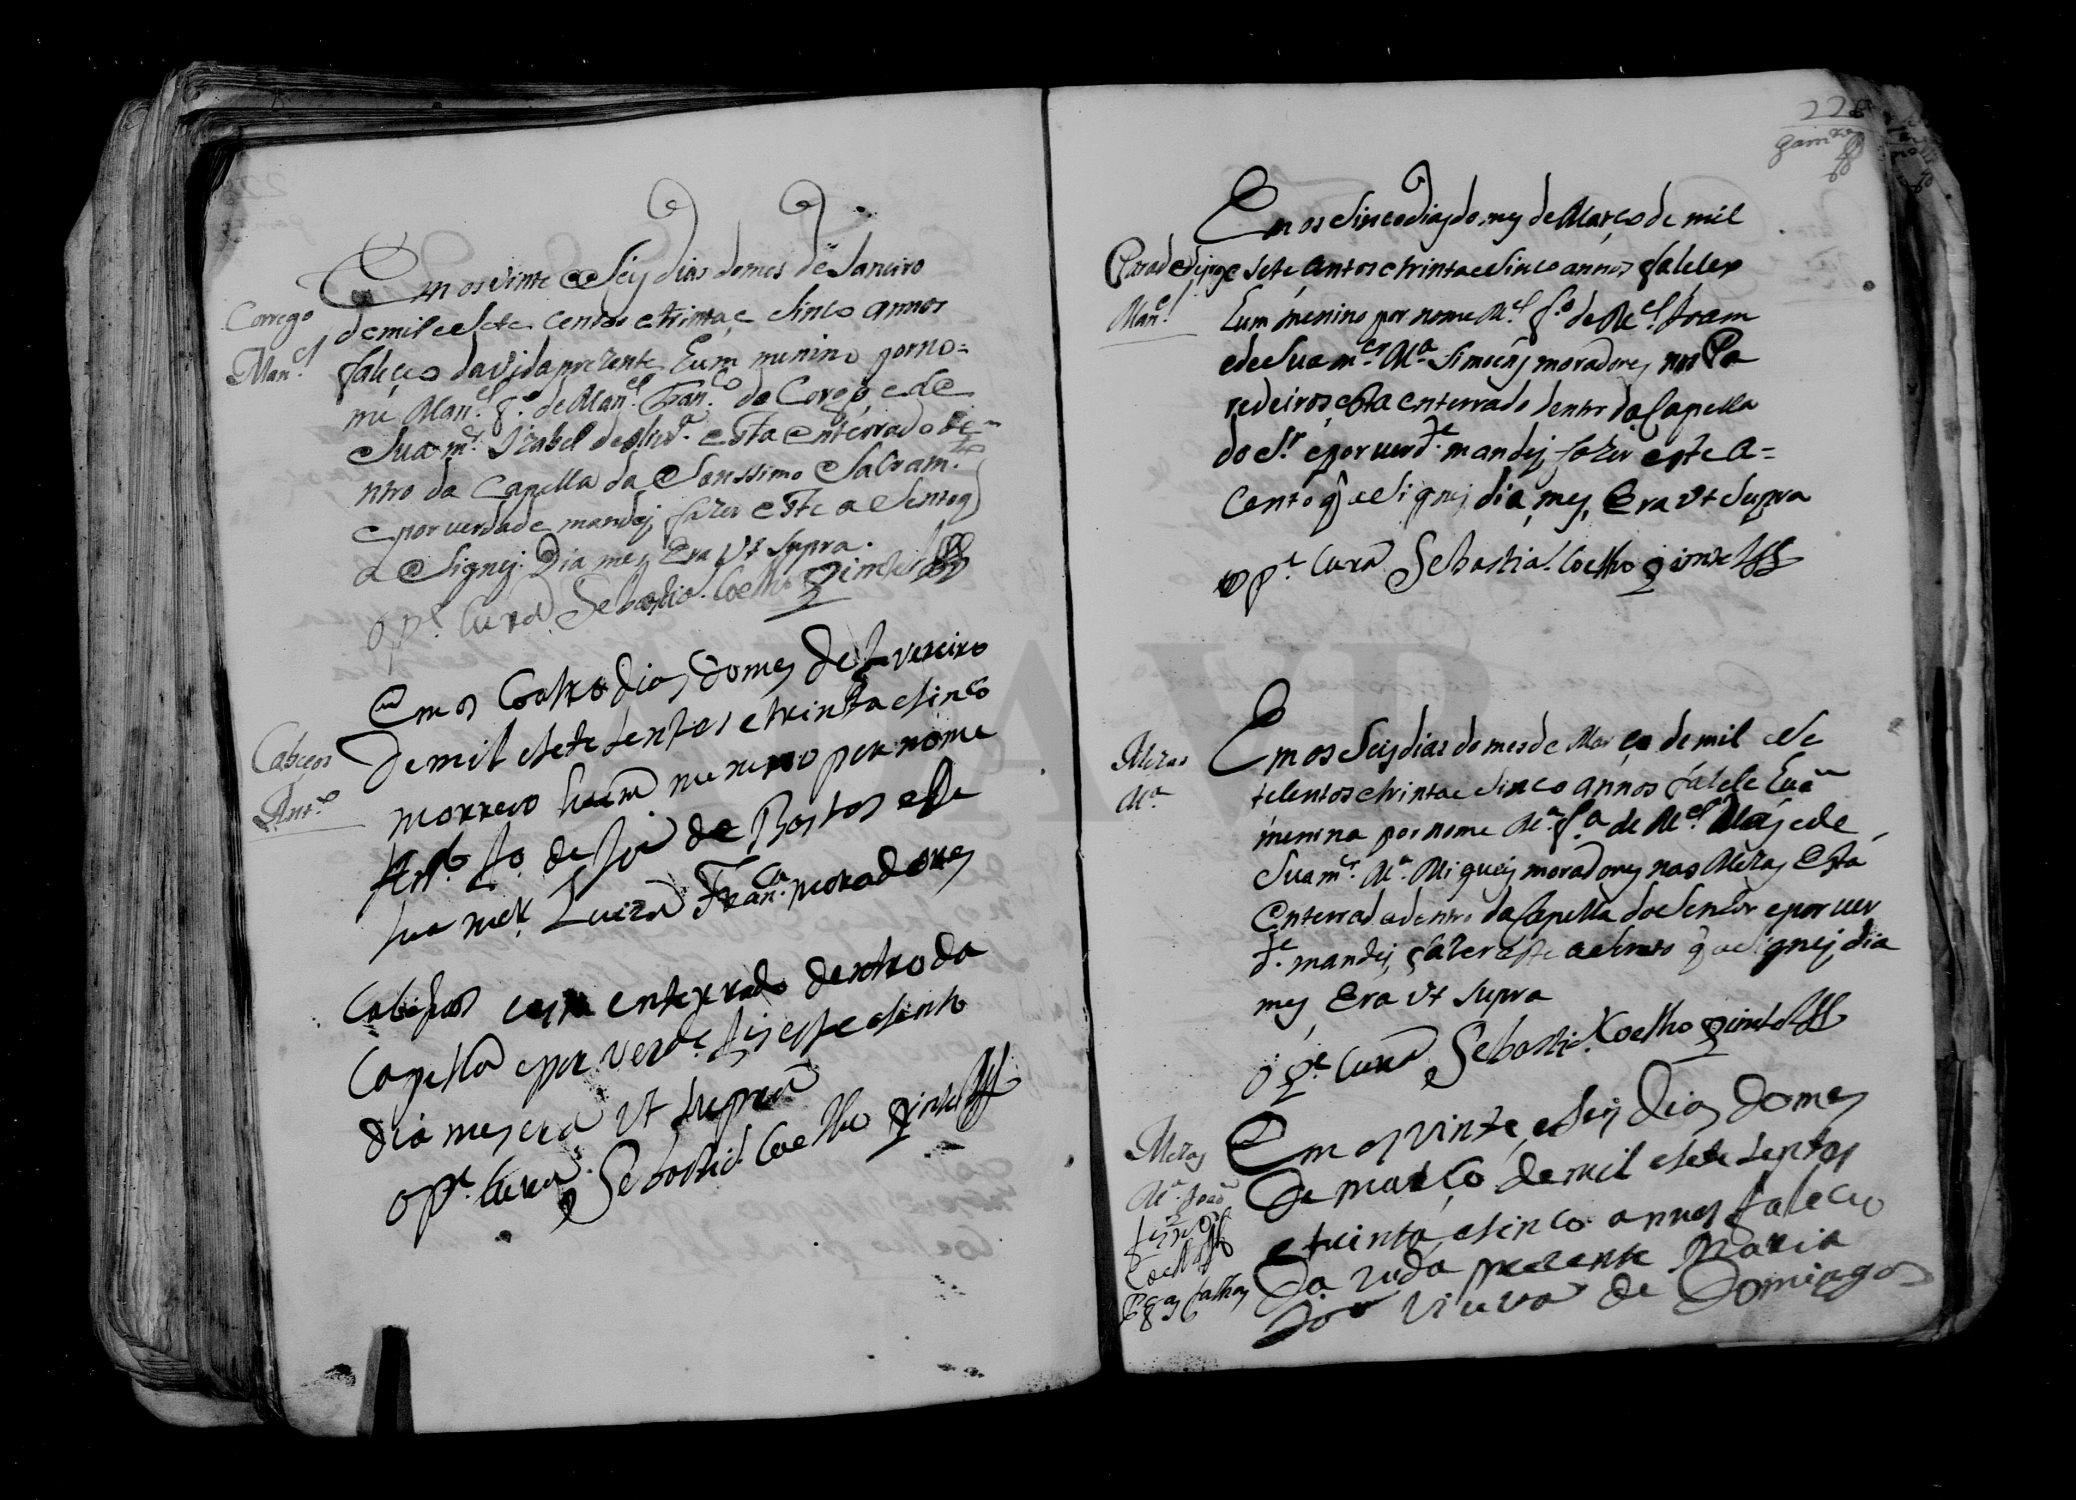 Corrego
Man.el
Em os vinte e Seis dias do mes de Janeiro
de mil e Sete centos e trinta e Sinco annos
faleceo da vida prezente hum menino por no=
me Man.el f.o de Man.el Fran.co do Corego e de
Sua m.er Izabel de olivr.a esta enterrado de-
ntro da Capella do Santissimo Sacram.to
e por verdade mandej fazer este aSento q
a Signej. Dia mes Era Vt Supra.
o P.e Cura Sebastiã Coelho pinto
Cabeços
Ant.o
Em os Coatro dias do mes de fevereiro
de mil e sete sentos e trinta e sinco
morreo huum menino por nome
Ant.o f.o de de Bastos e de
sua mer. Luiza Fran.ca moradores
enterrado dentro da
Capella e por verd.e fis este asento
dia mes era vt supra
o P.e Cura Sebastiã Coelho pinto
228
Em os Sinco dias do mes de Março de mil
e Sete Centos e trinta e Sinco annos faleceo
Man.el
hum menino por nome M.el f.o de M.el Joam
e de Sua m.er M.a Simois moradores nos Pa
redeiros esta enterrado dentro da Capella
do Sr. e por verd.e mandej fazer este a=
Cento q aSignej dia, mes, Era Vt Supra
o P.e Cura Sebastiã Coelho pinto
Mezas
M.a
Em os Seis dias do mes de Março de mil e Se
te Centos e trinta e Sinco annos falece hua
menina por nome M.a f.a de M.el e de
Sua m.er M.a Migueis moradores nas Mezas Está
enterrada dentro da Capella do Senhor e por ver
d.e mandej fazer este aSento q aSignej dia
mes Era Vt Supra
o P.e Cura Sebastiã Coelho pinto
Mezas
M.a
Em os vinte e Seis Dias do mes
de março de mil e sete sentos
e trinta e sinco annos faleceo
Da vida prezente Maria
viuva de Domingos